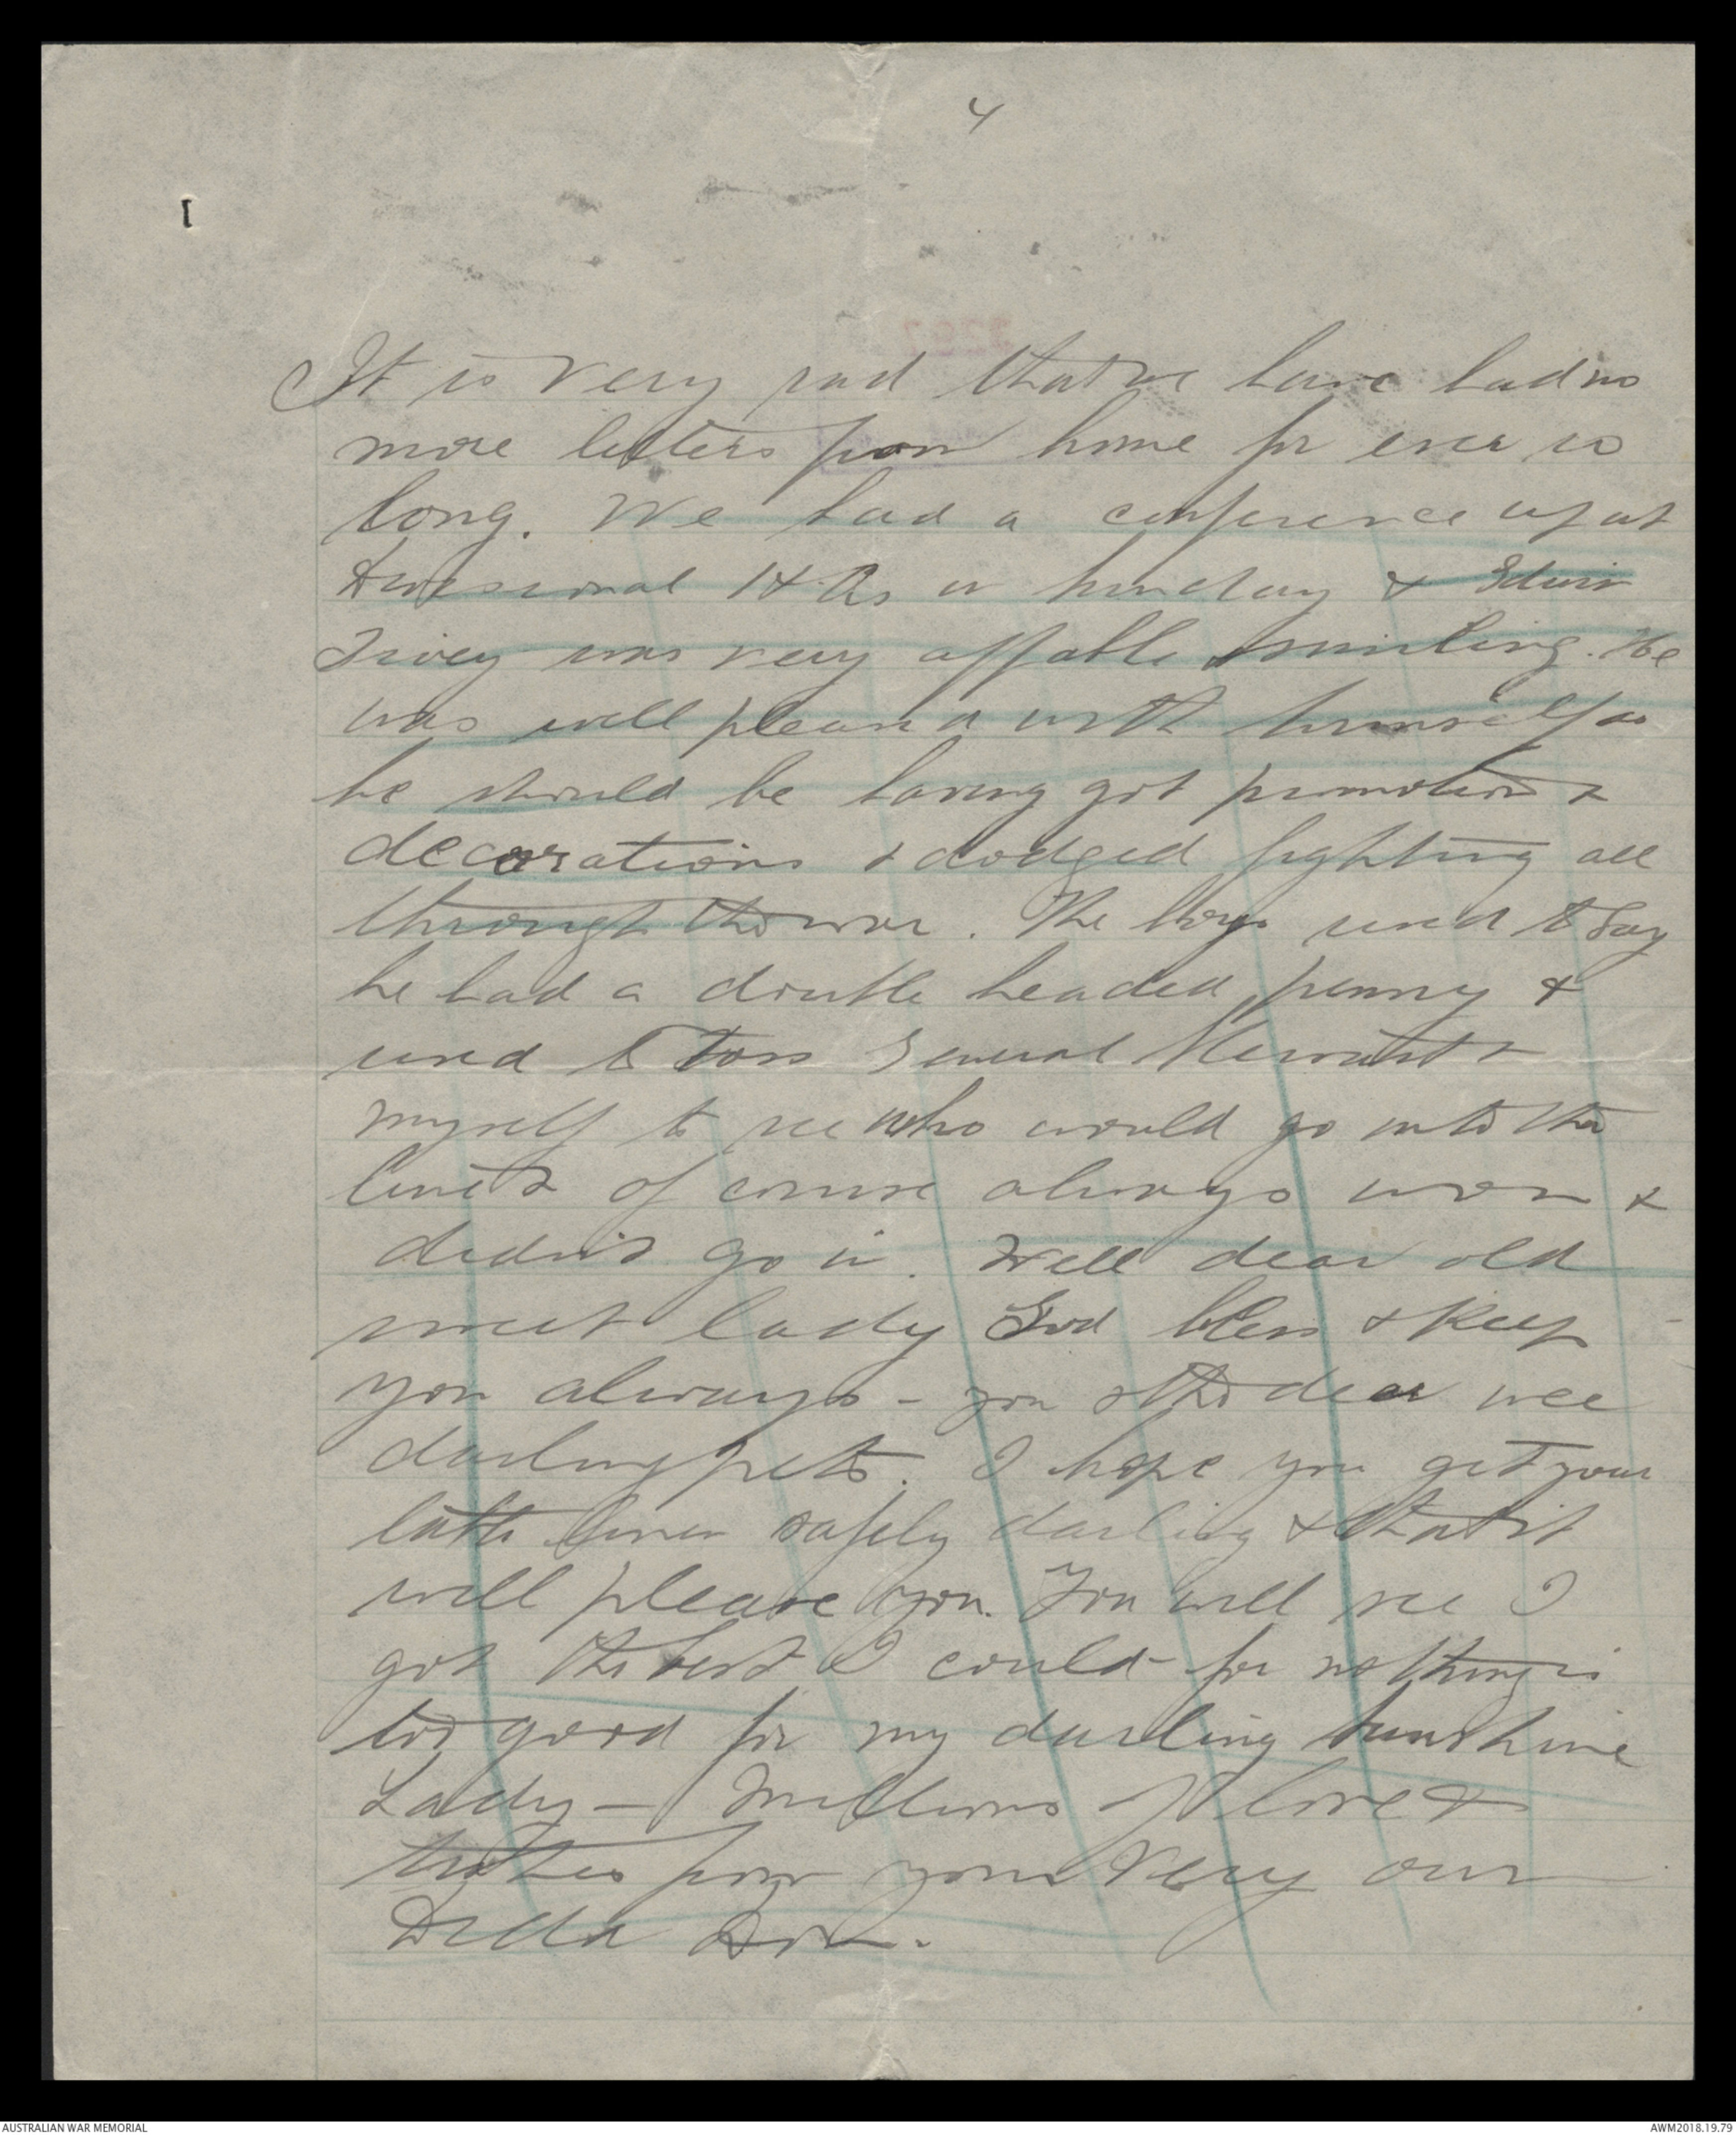 4
It is very sad that we have had no
more letters from home for ever so
long. We had a conference up at
Divisional HQrs on Sunday & Edwin
Tivey was very affable & smiling. He
was well pleased with himself as
he should be having got promotion &
decorations & dodged fighting all
through the war. The boys used to say
he had a double headed penny &
used to toss General Stewart &
myself to see who would go into the
line & of course always won &
didn't go in. Well dear old
sweet lady God bless & keep
you always - you & the dear wee
darling pets. I hope you get your
little safely darling & that it
will please you. You will see I
got the best I could for nothing is
too good for my darling Sunshine
Lady - Millions of love &
from your very own
AUSTRALIAN WAR MEMORIAL
AWM2018.19.79